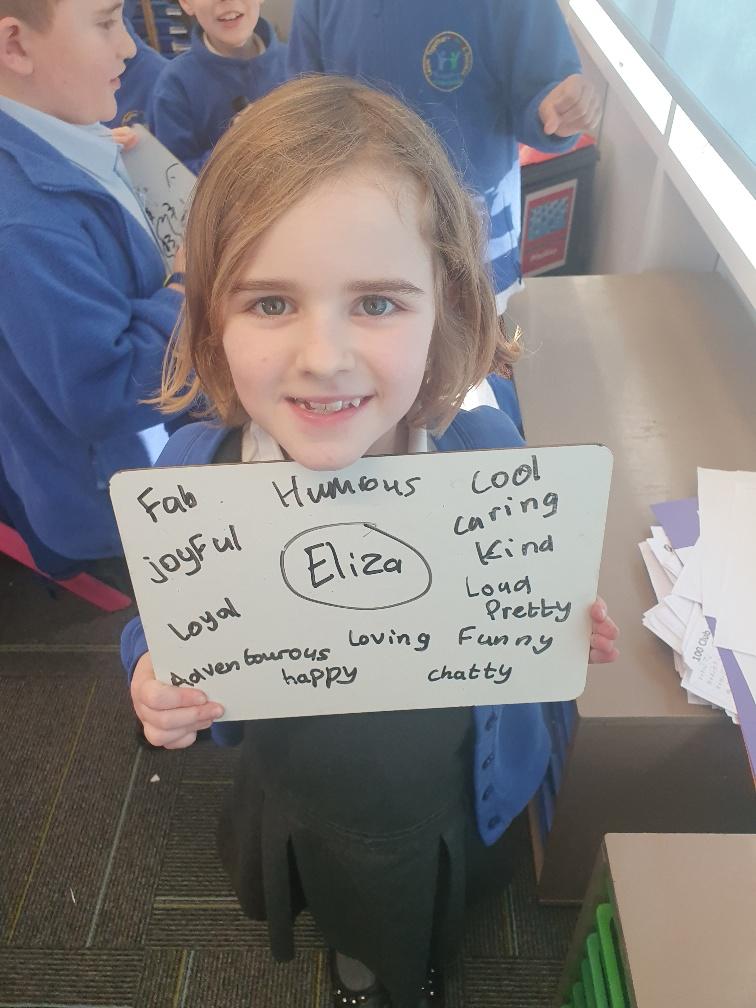 Fab Humous Cool
caring
joyful Eliza Kind
Loud
Loyal Pretty
Loving Funny
Adventourous
happy chatty
100 Club